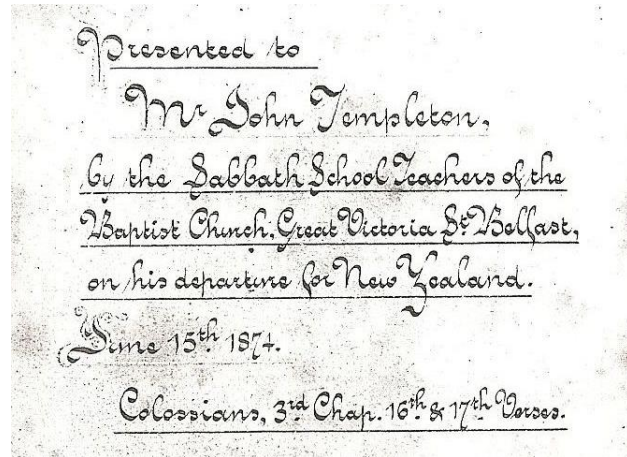 Presented to
Mr John Templeton,
by the Sabbath School Teachers of the
Baptist Church, Great Victoria St. Belfast,
on his departure for New Zealand.
June 15th 1874.
Colossians, 3rd Chap. 16th & 17th Verses.